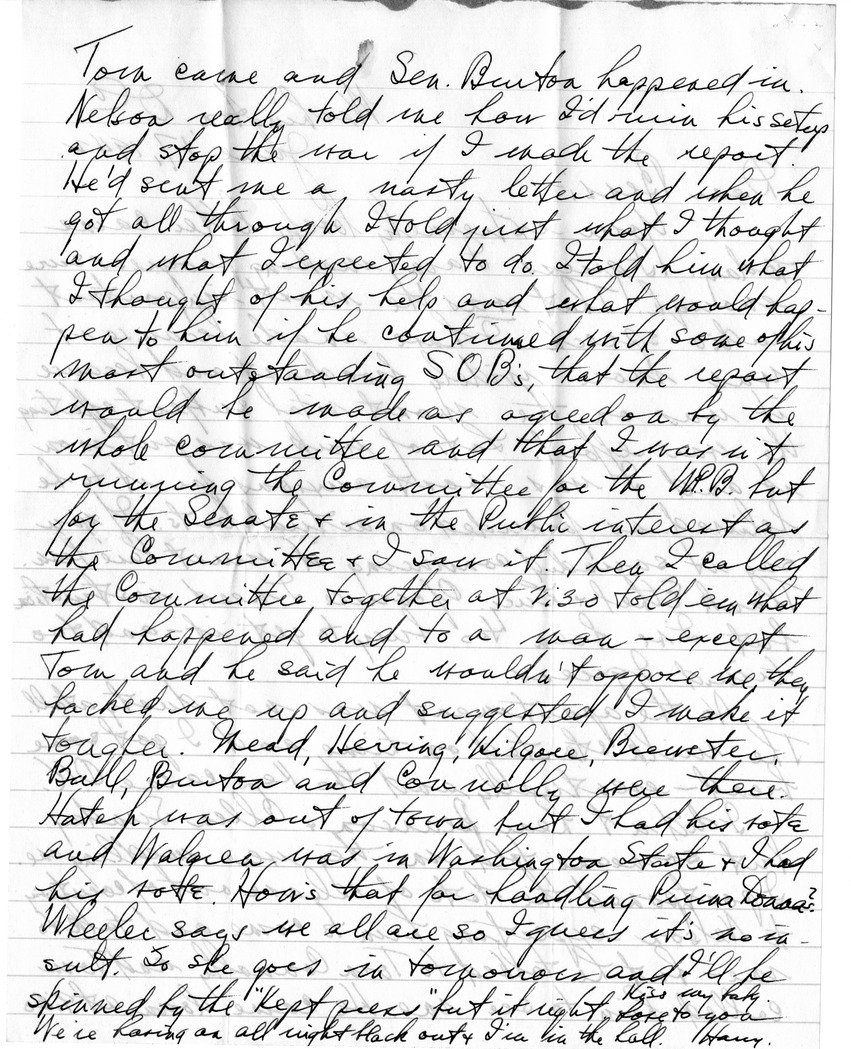 Tom came and Sen. Burton happened in.
Nelson really told me how I'd ruin his setup
and stop the war if I made the report.
He'd sent me a nasty letter and when he
got all through I told just what I thought
and what I expected to do. I told him what
I thought of his help and what would hap-
pen to him if he continued with some of his
most outstanding SOB's, that the report
would be made as agreed on by the
whole committee and that I was n't
running the Committee for the W.P.B. but
for the Senate & in the Public interest as
the Committee & I saw it. Then I called
the Committee together at 2:30 told em what
had happened and to a man - except
Tom and he said he wouldn't oppose me they
backed me up and suggested I make it
tougher. Mead, Herring, Kilgore, Brewster,
Ball, Burton and Connally were there.
Hatch was out of town but I had his vote
and Walgren was in Washington State & I had
his vote. Hows that for handling Prima Donnas?
Wheeler says we all are so I guess it's no in-
sult. So she goes in tomorrow and I'll be
skinned by the "Kept press" but it right. Kiss my baby.
Love to you
We're having an all night black out & I'm in the hall. Harry.